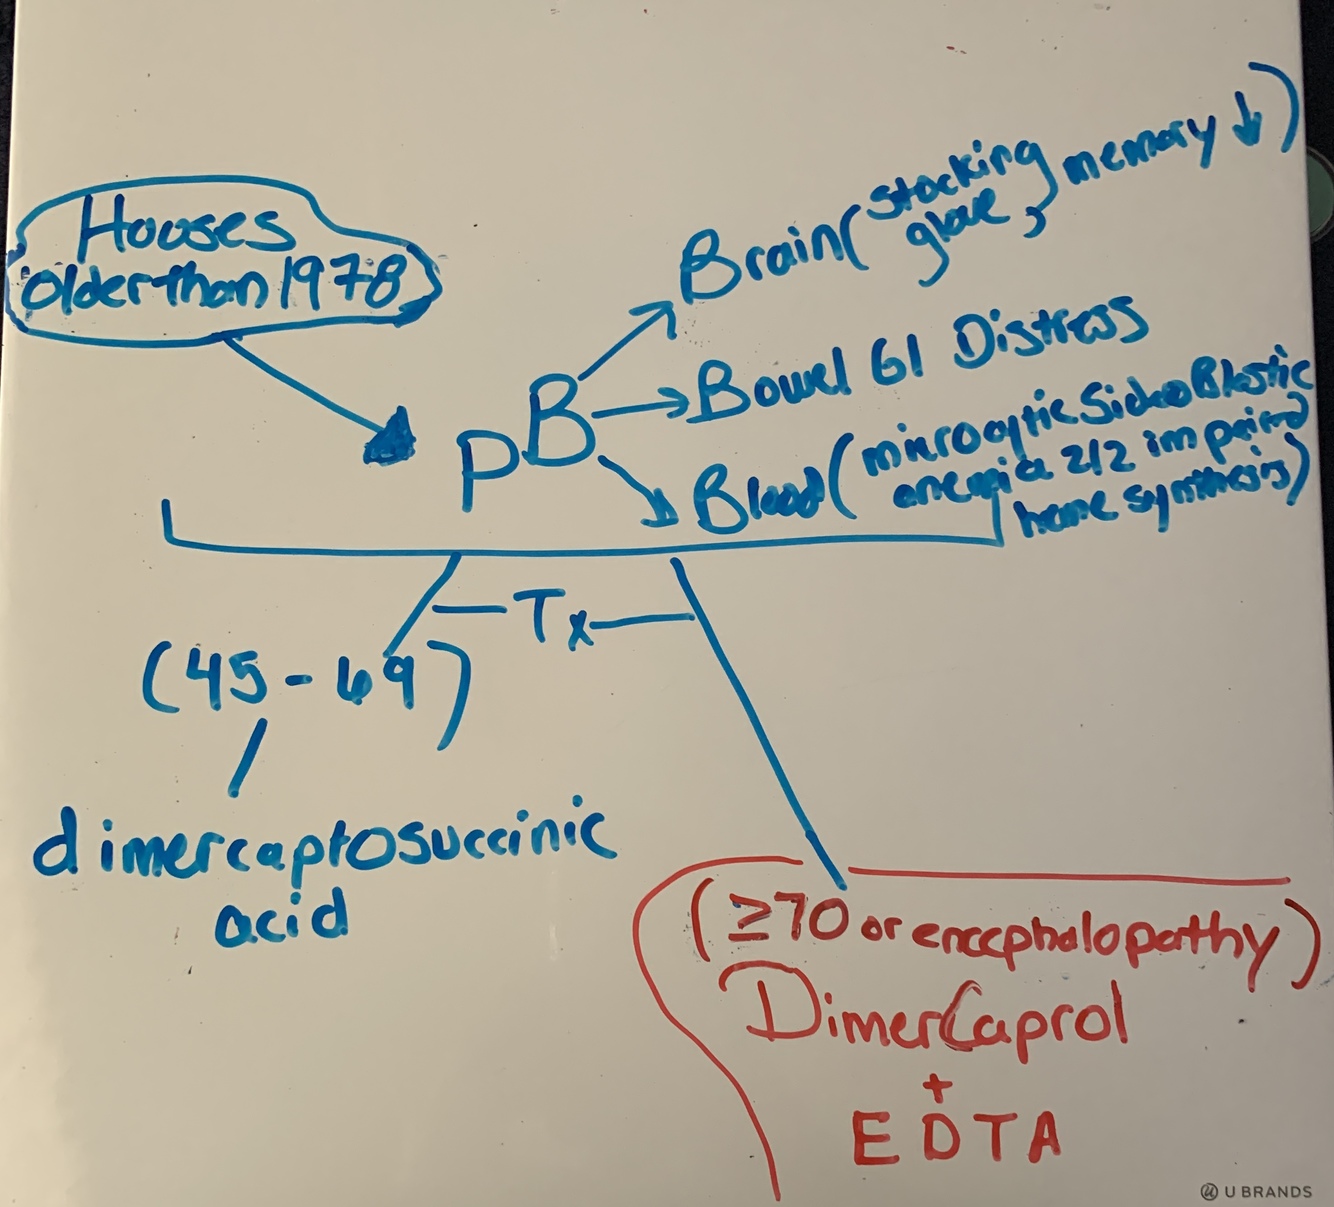 Houses
older than 1978
PB
Brain (stocking glove, memory ↓)
Bowel GI Distress
Blood (microcytic SideroBlastic
anemia 2/2 impaired
heme synthesis)
Tx
(45 - 69)
dimercaptosuccinic
acid
(≥70 or encephalopathy)
DimerCaprol
+
EDTA
U BRANDS